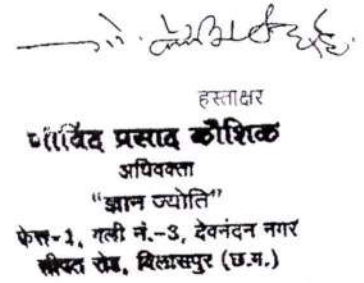 हस्ताक्षर
गोविंद प्रसाद कौशिक
अधिवक्ता
"ज्ञान ज्योति"
फेस-2, गली नं.-3, देवनंदन नगर
सीपत रोड, बिलासपुर (छ.ग.)